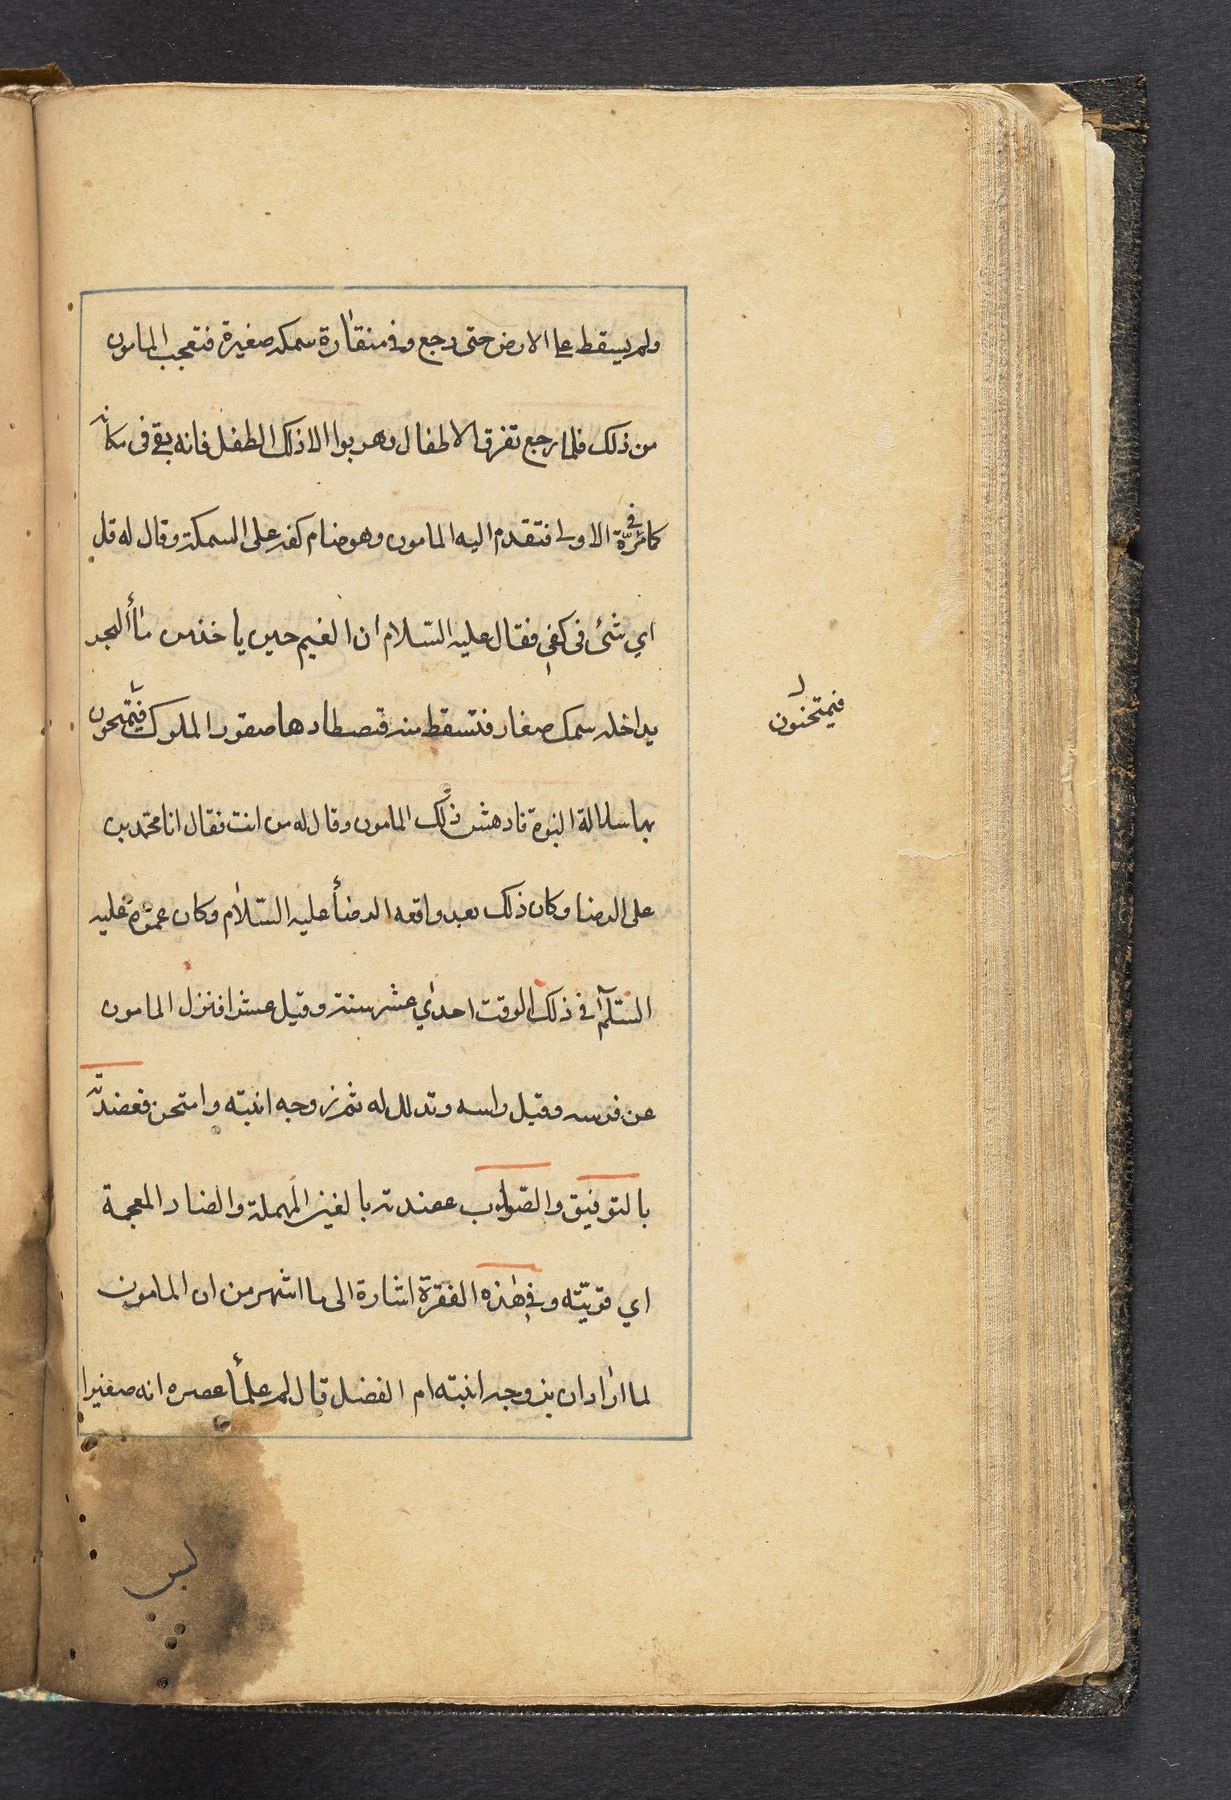 ولم يسقط على الارض حتى رجع وفي منقاره سمكه صغيرة فتعجب المامون
من ذلك فلما رجع تفرق الاطفال وهربوا الا ذلك الطفل فانه بقى فى مكانه
كما في مرّة الاولى فتقدم اليه المامون وهو ضام كفه على السمكة وقال له قل
اي شئ فى كفي فقال عليه السّلام ان الغيم حين ياخذ من ماء البحر
يداخله سمك صغار فتسقط منه فتصطادها صقور الملوك فيمتحون
فيمتحنون
بها سلالة النبوة فادهش ذلك المامون وقال له من انت فقال انا محمّد بن
على الرضا وكان ذلك بعد واقعه الرضا عليه السّلام وكان عمره عليه
السّلام فى ذلك الوقت احدي عشر سنة وقيل عشرا فنزل المامون
عن فرسه وقبل راسه وتذلل له ثم زوجه ابنته وامتحن فعضدته
بالتوفيق والصّواب عضدته بالغين المهملة والضاد المعجمة
اي قوّيته وفي هذه الفقرة اشارة الى ما اشهر من ان المامون
لما اراد ان يزوجه ابنته ام الفضل قال له علمأ عصره انه صغيرا
ليس